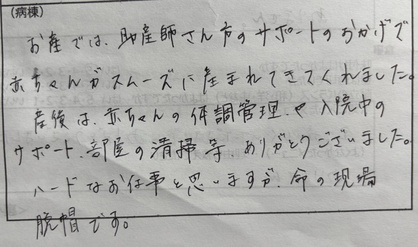 (病棟)
お産では、助産師さん方のサポートのおかげで
赤ちゃんがスムーズに産まれてきてくれました。
産後は、赤ちゃんの体調管理や入院中の
サポート、部屋の清掃等ありがとうございました。
ハードなお仕事と思いますが、命の現場
脱帽です。